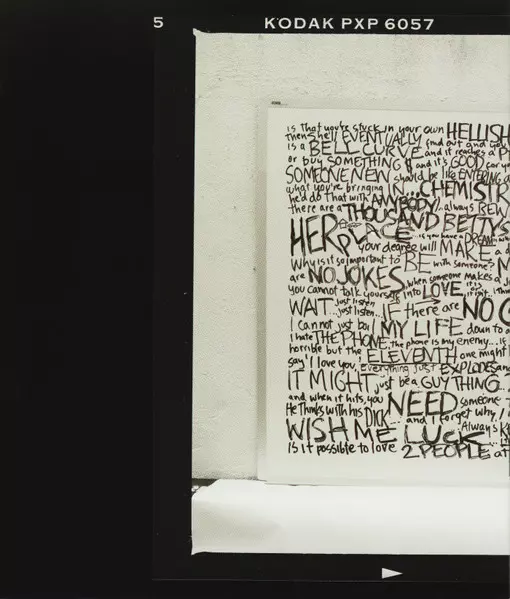 5 KODAK PXP 6057
is that you're stuck in your own HELLISH
then she'll EVENTUALLY find out and you
is a BELL CURVE and it reaches a P
or buy SOMETHING and it's GOOD for yo
SOMEONE NEW should be like ENTERING a
what you're bringing IN...CHEMISTR
he'd do that with ANYBODY always BEW
there are a THOUSAND BETTYS
HER PLACE if you have a DREAM
your degree will MAKE a d
Why is it so important to BE with someone?
are NO JOKES when someone makes a j
you cannot talk yourself into LOVE it is or it isn't
WAIT just listen just listen IF there are NO
I can not just bail MY LIFE down to a
I hate THE PHONE the phone is my enemy...is
horrible but the ELEVENTH one might
say 'I love you' everything just EXPLODES and
IT MIGHT just be a GUY THING
and when it hits, you NEED someone T
He Thinks with his DICK and I forget why I
WISH ME LUCK Always K
is it possible to love 2 PEOPLE at